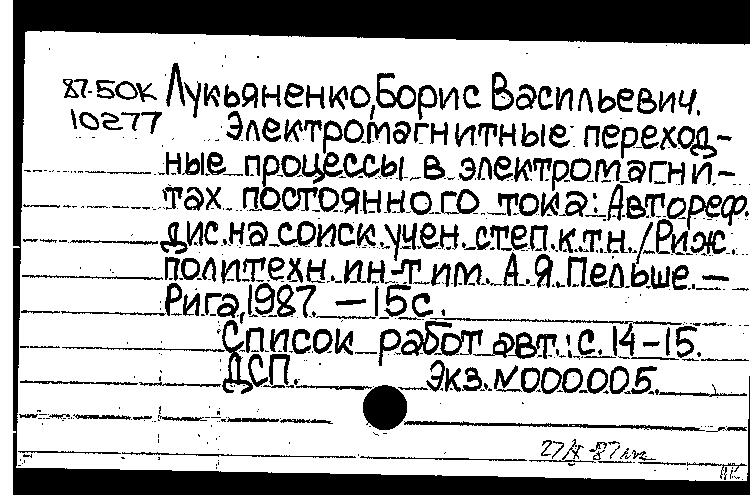 87-5ОК Лукьяненко, Борис Васильевич.
10277 Электромагнитные переход-
ные процессы в электромагни-
тах постоянного тока: Автореф.
дис. на соиск. учен. степ. к.т.н. / Риж.
политехн. ин-т им. А.Я. Пельше. —
Рига, 1987. — 15 с.
Список работ авт.: с. 14-15.
ДСП. Экз. N000005.